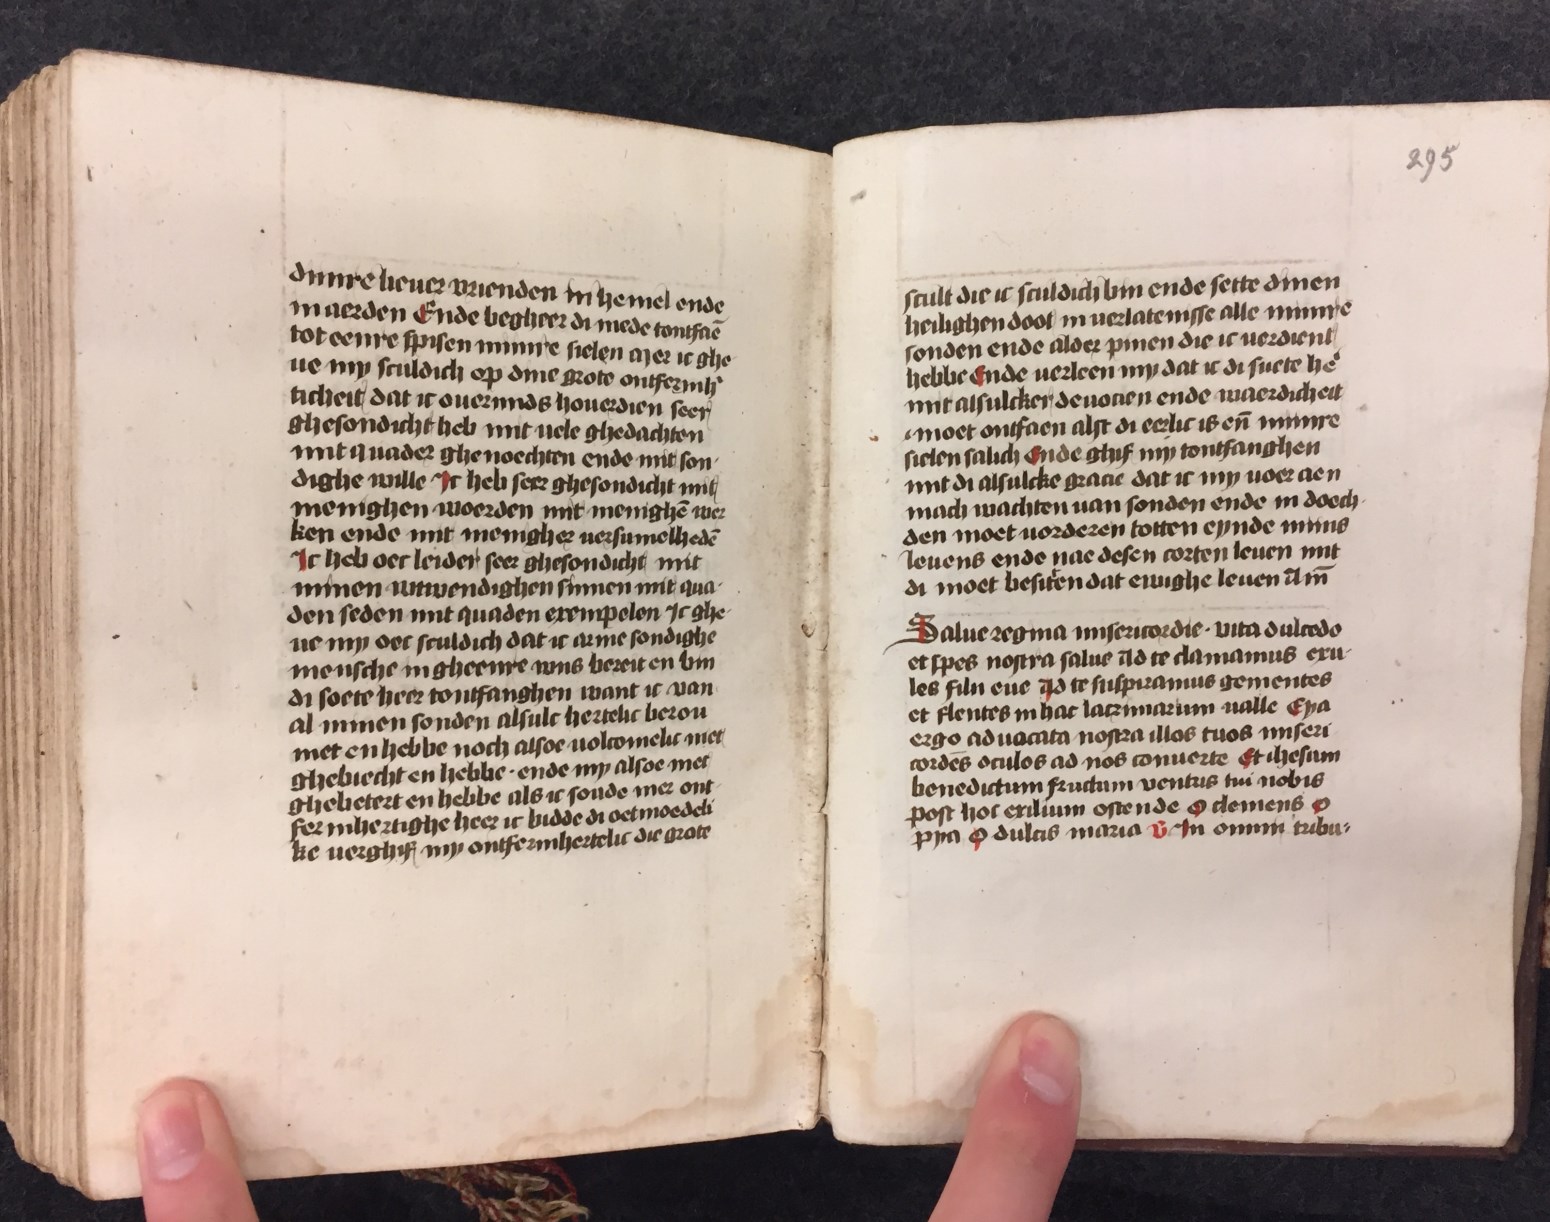 dijnre lieuer vrienden in hemel ende
in aerden Ende begheer di mede tontfaē
tot eenre spisen minre sielen mer ic ghe
ue my sculdich op dine grote ontfermh
ticheit dat ic ouermids houerdien seer
ghesondicht heb mit uele ghedachten
mit quader ghenoechten ende mit son
dighe wille Ic heb seer ghesondicht mit
menighen woerden mit menighē wer
ken ende mit menigher uersumelhedē
Ic heb oec leider seer ghesondicht mit
minen wtwendighen sinnen mit qua
den seden mit quaden exempelen Ic ghe
ue my oec sculdich dat ic arme sondighe
mensche in gheenre wijs bereit en bin
di soete heer tontfanghen want ic van
al minen sonden alsulc hertelic berou
niet en hebbe noch alsoe uolcomelic niet
ghebiecht en hebbe · ende my alsoe niet
ghebetert en hebbe als ic soude mer ont
fermhertighe heer ic bidde di oetmoedeli
ke uerghif my ontfermhertelic die grote
295
scult die ic sculdich bin ende sette dinen
heilighen doot in uerlatenisse alle minre
sonden ende alder pinen die ic uerdient
hebbe Ende uerleen my dat ic di suete he
mit alsulcker deuocien ende waerdicheit
moet ontfaen alst di eerlic is eñ minre
sielen salich Ende ghif my tontfanghen
mit di alsulcke gracie dat ic my uoer aen
mach wachten uan sonden ende in doech
den moet uorderen totten eynde mijns
leuens ende nae desen corten leuen mit
di moet besitten dat ewighe leuen Am̄
Salue regina misericordie · vita dulcedo
et spes nostra salue Ad te clamamus exu
les filij eue Ad te suspiramus gementes
et flentes in hac lacrimarum ualle Eya
ergo aduocata nostra illos tuos miseri
cordēs oculos ad nos conuerte Et ihesum
benedictum fructum ventris tui nobis
post hoc exilium ostende O clemens O
pya O dulcis maria v̄ In omni tribu